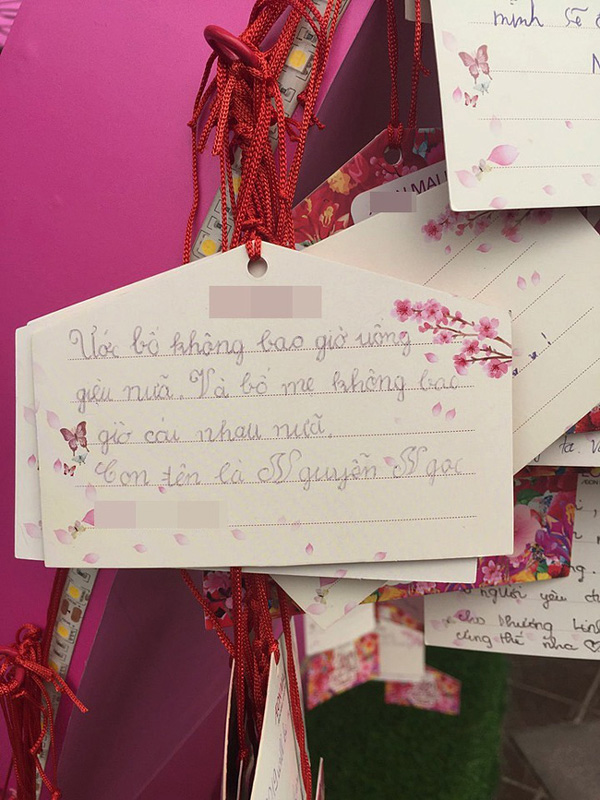 mình sẽ
N
MALL
Ước bố không bao giờ uống
giệu nưã. Và bố mẹ không bao
giờ cáu nhau nưã.
Con tên là Nguyễn Ngọc
!
người yêu
cho Phương Linh
cũng thế nha